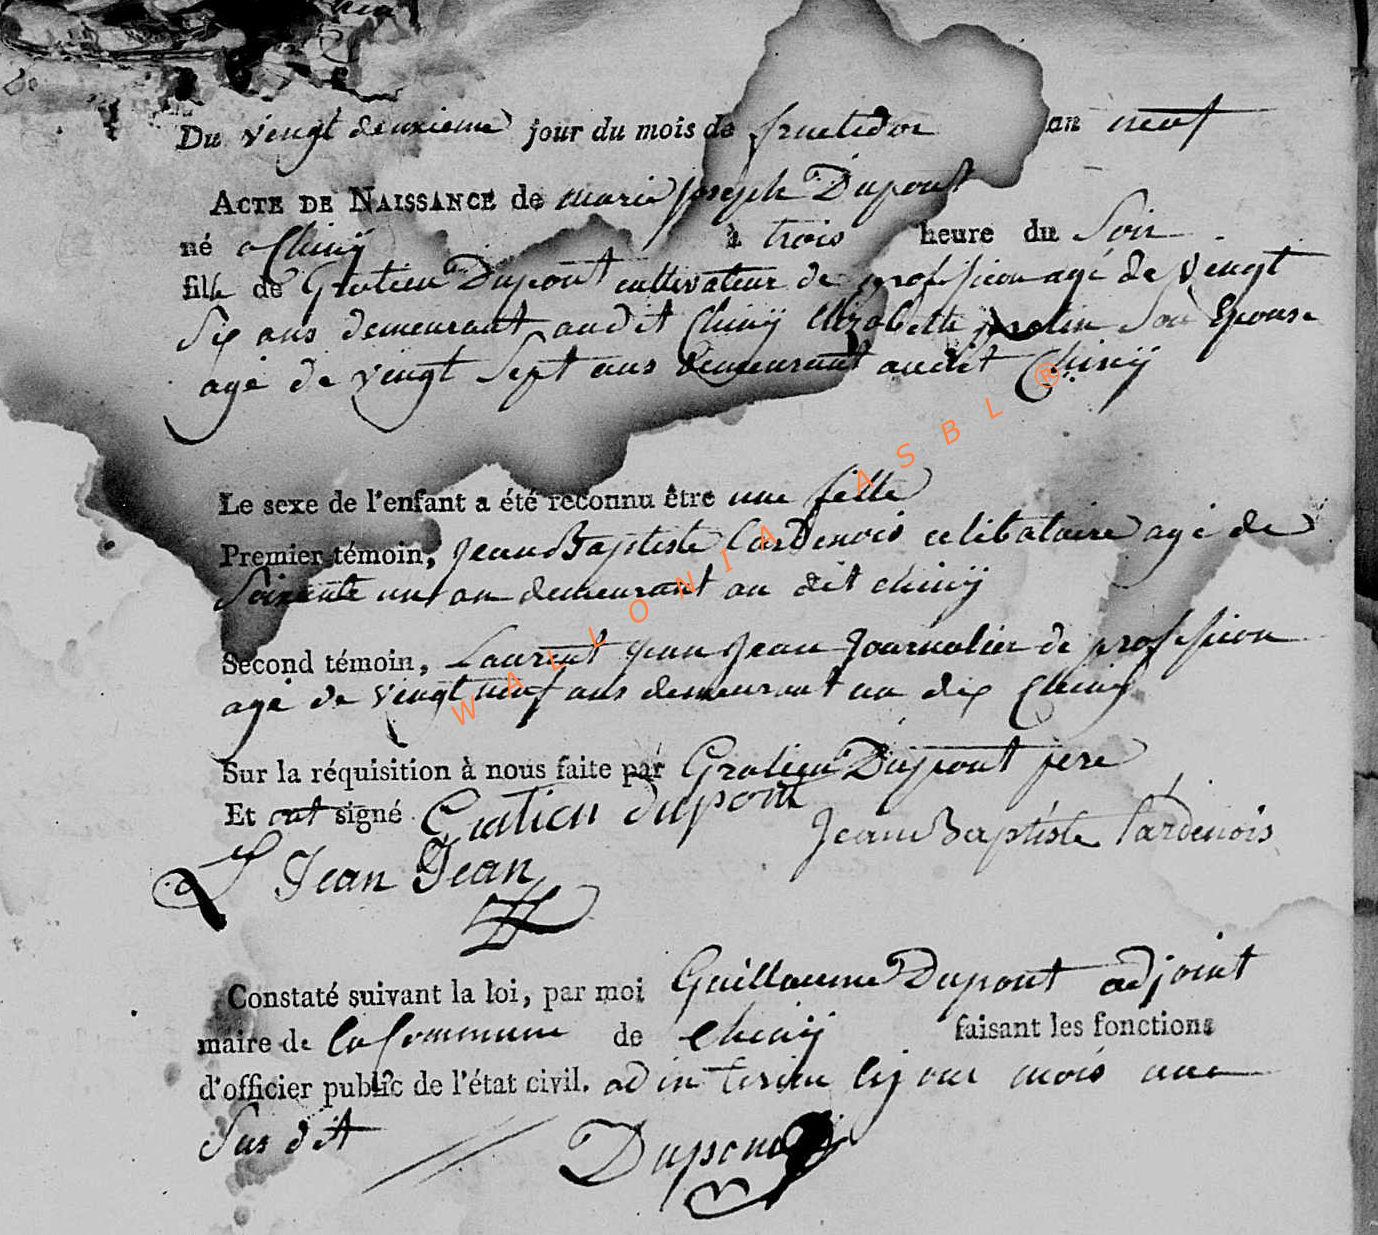 Du vengt deuxieme jour du mois de fructidor an neuf
ACTE DE NAISSANCE de marie joseph Dupont
né a Chiny à trois heure du Soir
fille de Gratien Dupont cultivateur de profession agé de vengt
Six ans demeurant audit Chiny Elizabette Son Epouse
agé de vengt Sept ans demeurant audit Chiny
Le sexe de l'enfant a été reconnu être une fille
Premier témoin, Jean Baptiste Lardenois celibataire agé de
Soixente un an demeurant au dit chiny
Second témoin, Laurent Jean Journalier de profession
agé de vengt neuf ans demeurant au dix Chiny
Sur la réquisition à nous faite par Gratien Dupont pere
Et ont signé Gratien dupont
Jean Baptiste Lardenois
L Jean Jean
Constaté suivant la loi, par moi Guillaume Dupont adjoint
maire de la Commune de Chiny faisant les fonctions
d'officier public de l'état civil. ad interim les jour mois an
Sus dit
Dupont
WALLONIA ASBL ®